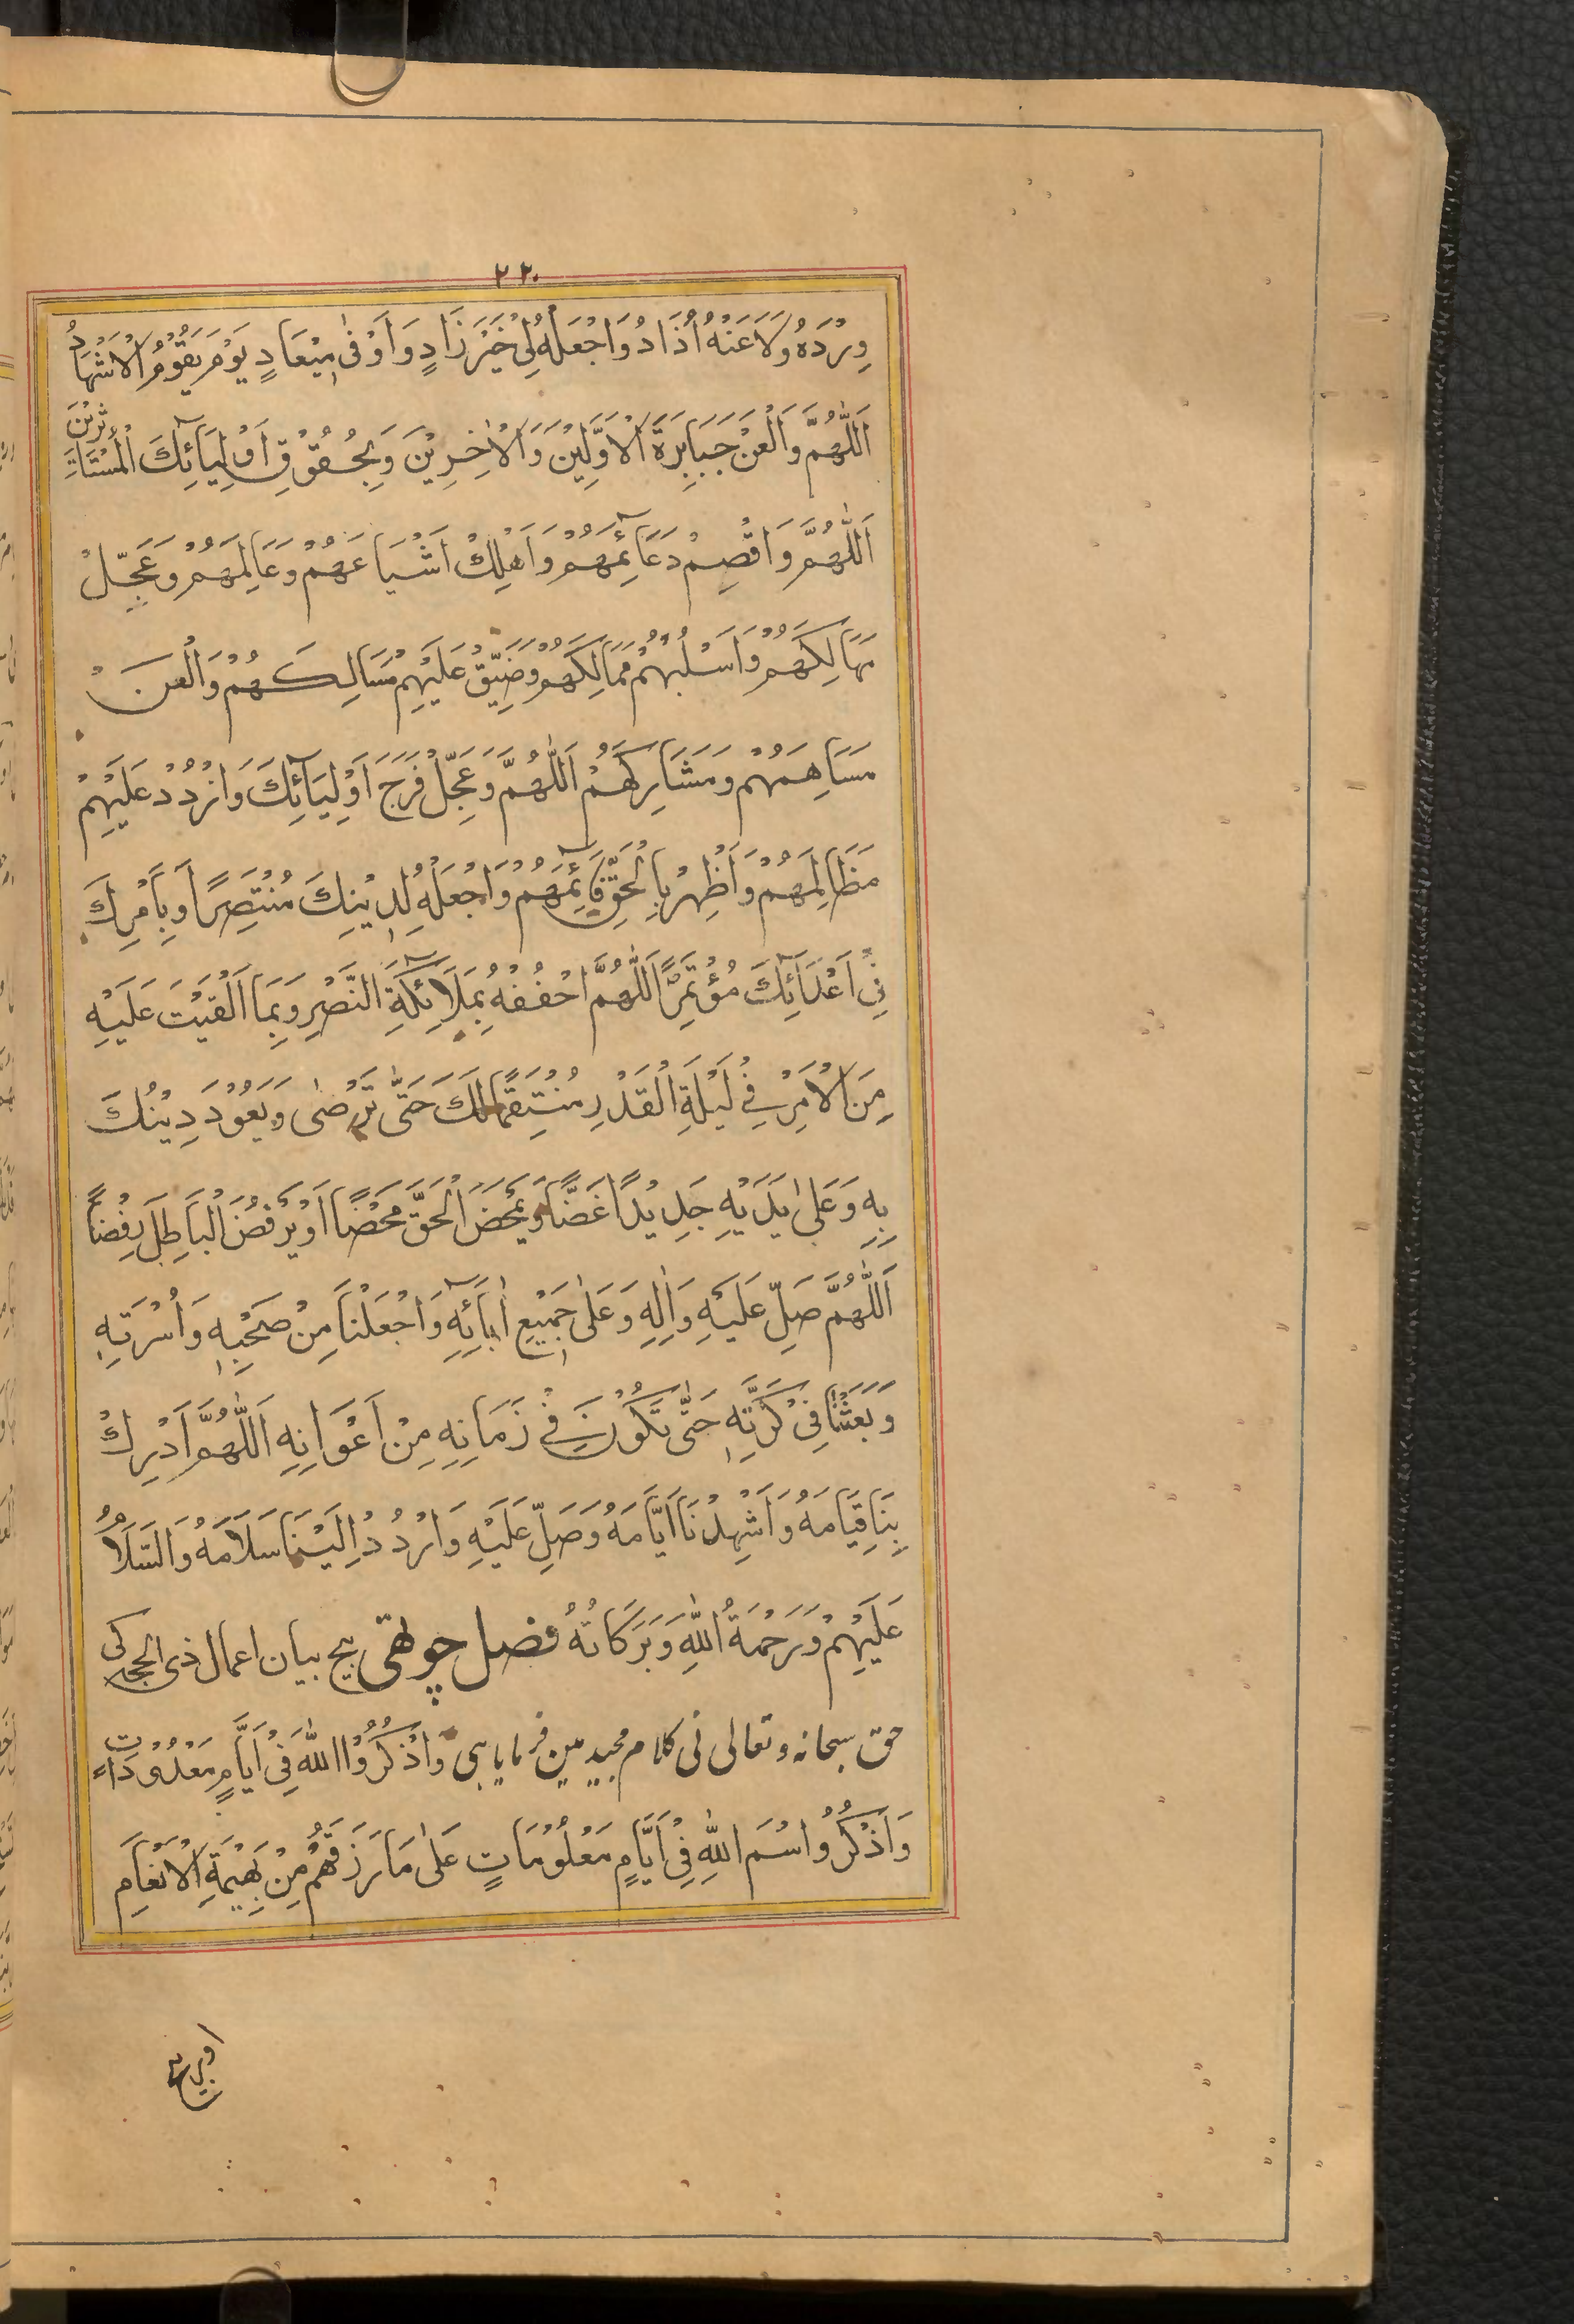 ٢٢٠
وِرْدَهُ وَلَا عَنْهُ اُذَادُ وَاجْعَلْهُ لِیْ خَیْرَ زَادٍ وَ اَوْفٰی مِیْعَادٍ یَوْمَ یَقُوْمُ الْاَشْهَادُ
اَللّٰهُمَّ وَالْعَنْ جَبَابِرَةَ الْاَوَّلِیْنَ وَالْاٰخِرِیْنَ وَبِحُقُوْقِ اَوْلِیَآئِكَ الْمُسْتَاْثِرِیْنَ
اَللّٰهُمَّ وَاقْصِمْ دَعَآئِمَهُمْ وَاَهْلِكْ اَشْیَاعَهُمْ وَعَامِلَهُمْ وَعَجِّلْ
مَهَالِكَهُمْ وَاَسْلُبْهُمْ مَمَالِكَهُمْ وَضَیِّقْ عَلَیْهِمْ مَسَالِكَهُمْ وَالْعَنْ
مَسَاهِمَهُمْ وَمَشَارِكَهُمْ اَللّٰهُمَّ وَعَجِّلْ فَرَجَ اَوْلِیَآئِكَ وَارْدُدْ عَلَیْهِمْ
مَظَالِمَهُمْ وَاَظْهِرْ بِالْحَقِّ قَآئِمَهُمْ وَاجْعَلْهُ لِدِیْنِكَ مُنْتَصِرًا وَبِاَمْرِكَ
فِیْ اَعْدَآئِكَ مُؤْتَمِرًا اَللّٰهُمَّ احْفُفْهُ بِمَلَآئِكَةِ النَّصْرِ وَبِمَا اَلْقَیْتَ عَلَیْهِ
مِنَ الْاَمْرِ فِیْ لَیْلَةِ الْقَدْرِ مُنْتَقِمًا لَكَ حَتّٰی تَرْضٰی وَیَعُوْدَ دِیْنُكَ
بِهِ وَعَلٰی یَدَیْهِ جَدِیْدًا غَضًّا وَیَمْحَضَ الْحَقَّ مَحْضًا اَوْ یَرْفُضَ الْبَاطِلَ رِفْضًا
اَللّٰهُمَّ صَلِّ عَلَیْهِ وَاٰلِهِ وَعَلٰی جَمِیْعِ اٰبَآئِهِ وَاجْعَلْنَا مِنْ صَحْبِهِ وَاُسْرَتِهِ
وَبَعَثْنَا فِیْ كَرَّتِهِ حَتّٰی نَكُوْنَ فِیْ زَمَانِهِ مِنْ اَعْوَانِهِ اَللّٰهُمَّ اَدْرِكْ
بِنَا قِیَامَهُ وَاَشْهِدْنَا اَیَّامَهُ وَصَلِّ عَلَیْهِ وَارْدُدْ اِلَیْنَا سَلَامَهُ وَالسَّلَامُ
عَلَیْهِمْ وَرَحْمَةُ اللّٰهِ وَبَرَكَاتُهُ فصل چوتھی بیچ بیان اعمال ذی الحجہ کی
حق سبحانہ وتعالی نی کلام مجید مین فرمایا ہی وَاذْكُرُوا اللّٰهَ فِیْ اَیَّامٍ مَعْدُوْدَاتٍ
وَاذْكُرُوا اسْمَ اللّٰهِ فِیْ اَیَّامٍ مَعْلُوْمَاتٍ عَلٰی مَا رَزَقَهُمْ مِنْ بَهِیْمَةِ الْاَنْعَامِ